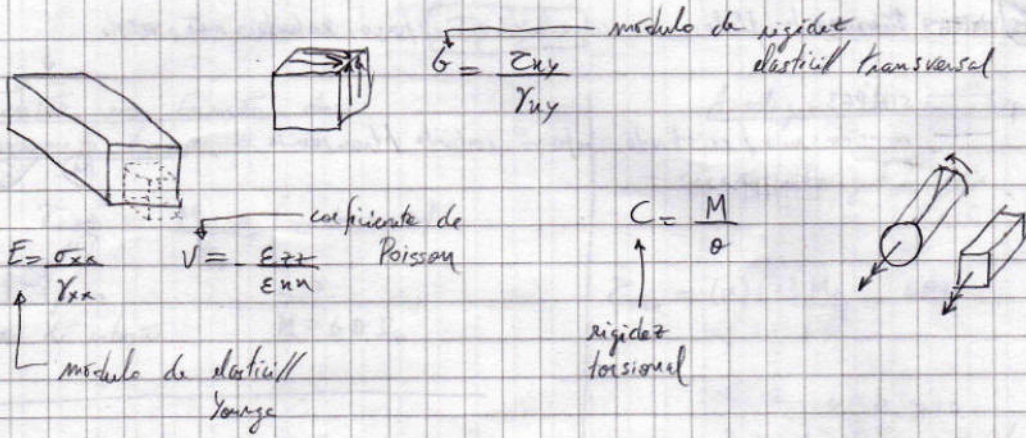 modulo de rigidez
elasticid// transversal
G = τxy / γxy
E = σxx / γxx
ν = - εzz / εxx
coeficiente de
Poisson
C = M / θ
rigidez
torsional
modulo de elasticid//
Younge